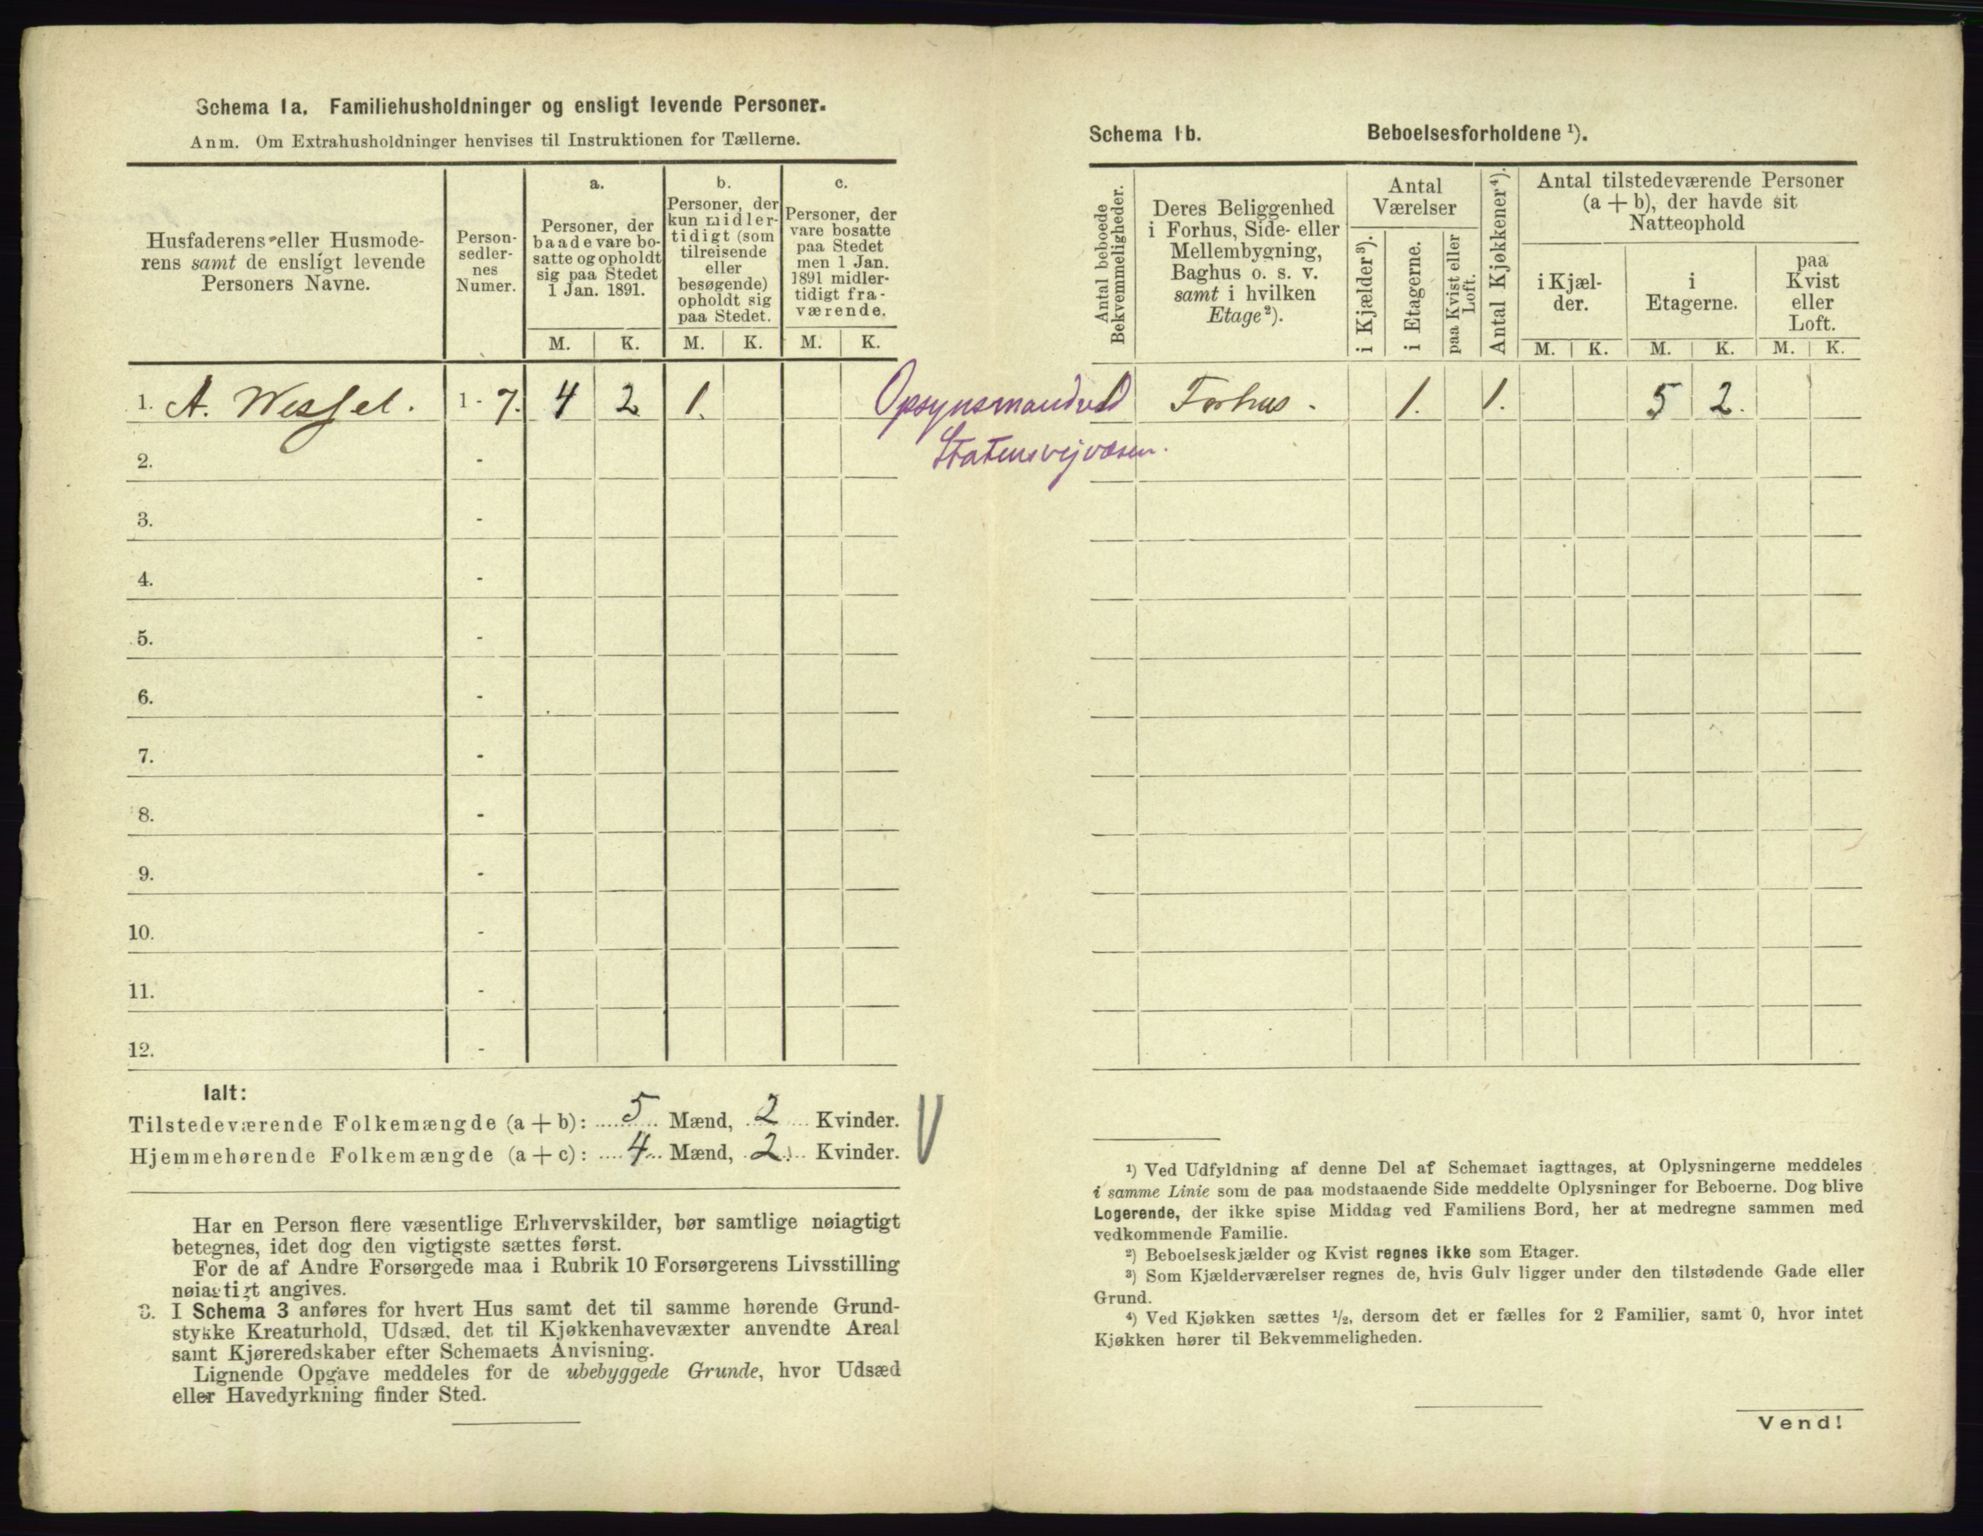 Schema 1a. Familiehusholdninger og ensligt levende Personer.
Anm. Om Extrahusholdninger henvises til Instruktionen for Tællerne.
Husfaderens eller Husmode-
rens samt de ensligt levende
Personers Navne.
Person-
sedler-
nes
Numer.
a.
Personer, der
baade vare bo-
satte og opholdt
sig paa Stedet
1 Jan. 1891.
b.
Personer, der
kun midler-
tidigt (som
tilreisende
eller
besøgende)
opholdt sig
paa Stedet.
c.
Personer, der
vare bosatte
paa Stedet
men 1 Jan.
1891 midler-
tidigt fra-
værende.
M. K. M. K. M. K.
1. A. Wessel. 1 - 7. 4 2 1.
2. -
3. -
4. -
5. -
6. -
7. -
8. -
9. -
10. -
11. -
12. -
Ialt:
Tilstedeværende Folkemængde (a + b): 5 Mænd, 2 Kvinder.
Hjemmehørende Folkemængde (a + c): 4 Mænd, 2 Kvinder.
Har en Person flere væsentlige Erhvervskilder, bør samtlige nøiagtigt
betegnes, idet dog den vigtigste sættes først.
For de af Andre Forsørgede maa i Rubrik 10 Forsørgerens Livsstilling
nøiagtigt angives.
3. I Schema 3 anføres for hvert Hus samt det til samme hørende Grund-
stykke Kreaturhold, Udsæd, det til Kjøkkenhavevæxter anvendte Areal
samt Kjøreredskaber efter Schemaets Anvisning.
Lignende Opgave meddeles for de ubebyggede Grunde, hvor Udsæd
eller Havedyrkning finder Sted.
Schema 1b. Beboelsesforholdene ¹).
Antal beboede
Bekvemmeligheder.
Deres Beliggenhed
i Forhus, Side- eller
Mellembygning,
Baghus o. s. v.
samt i hvilken
Etage²).
Antal
Værelser
i Kjælder³).
i Etagerne.
paa Kvist eller
Loft.
Antal Kjøkkener⁴).
Antal tilstedeværende Personer
(a + b), der havde sit
Natteophold
i Kjæl-
der.
i
Etagerne.
paa
Kvist
eller
Loft.
M. K. M. K. M. K.
Opsynsmand ved
Statensvejvæsen.
1 Forhus. 1. 1. 5 2.
¹) Ved Udfyldning af denne Del af Schemaet iagttages, at Oplysningerne meddeles
i samme Linie som de paa modstaaende Side meddelte Oplysninger for Beboerne. Dog blive
Logerende, der ikke spise Middag ved Familiens Bord, her at medregne sammen med
vedkommende Familie.
²) Beboelseskjælder og Kvist regnes ikke som Etager.
³) Som Kjælderværelser regnes de, hvis Gulv ligger under den tilstødende Gade eller
Grund.
⁴) Ved Kjøkken sættes ½, dersom det er fælles for 2 Familier, samt 0, hvor intet
Kjøkken hører til Bekvemmeligheden.
Vend!